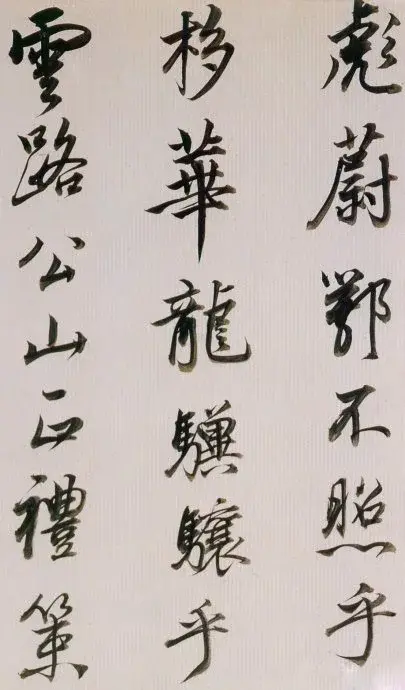 彪蔚鄂不照乎
栘華龍驥驤乎
雲路公山正禮策